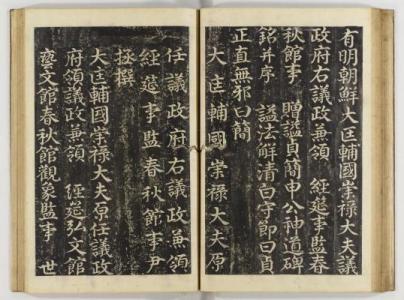 有明朝鮮大匡輔國崇祿大夫議
政府右議政兼領 經筵事監春
秋館事 贈諡貞簡申公神道碑
銘并序 諡法觧清白守節曰貞
正直無邪曰簡
大匡輔國崇祿大夫原
任議政府右議政兼領
經筵事監春秋館事尹
拯撰
大匡輔國崇祿大夫原任議政
府領議政兼領 經筵弘文館
藝文館春秋館觀象監事 世